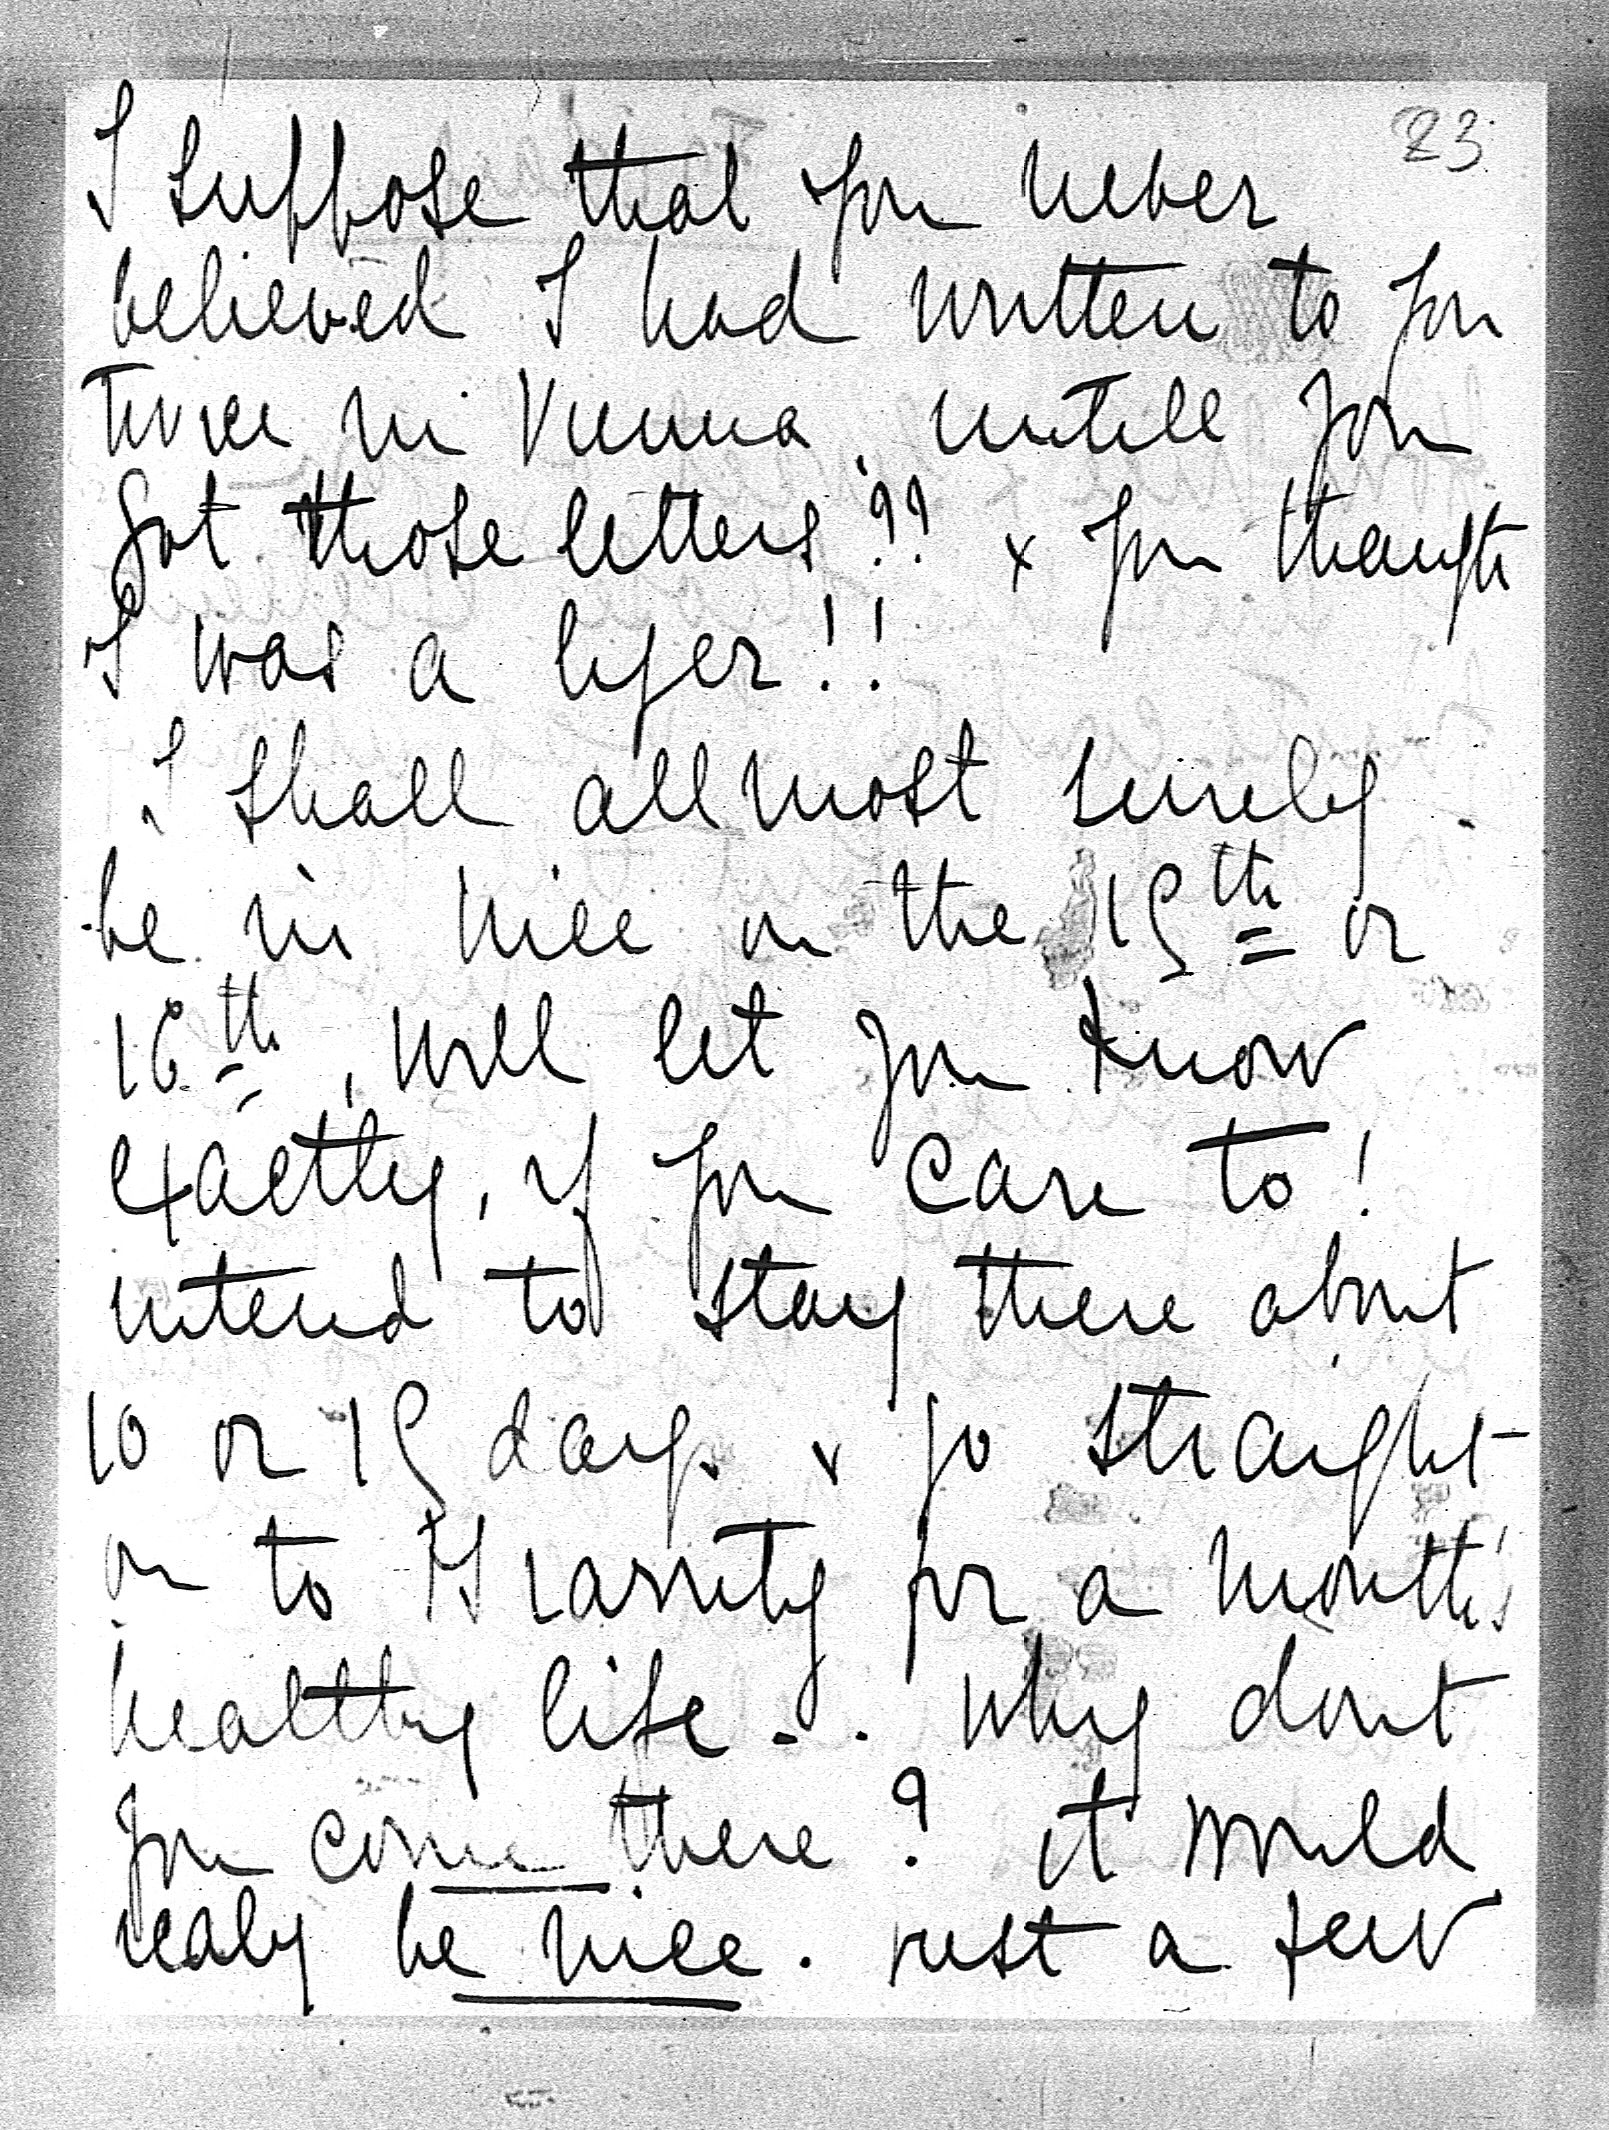 23
I suppose that you never
believed I had written to you
twice in Vienna, untill you
got those letters?? x you thaught
I was a lyer!!
I shall allmost surely
be in Nice on the 15th or
16th, will let you know
exactly, if you care to!
intend to stay there about
10 or 15 days. x go straight
on to Biarritz for a month's
healthy life. . Why dont
you come there? it would
realy be nice. rest a few